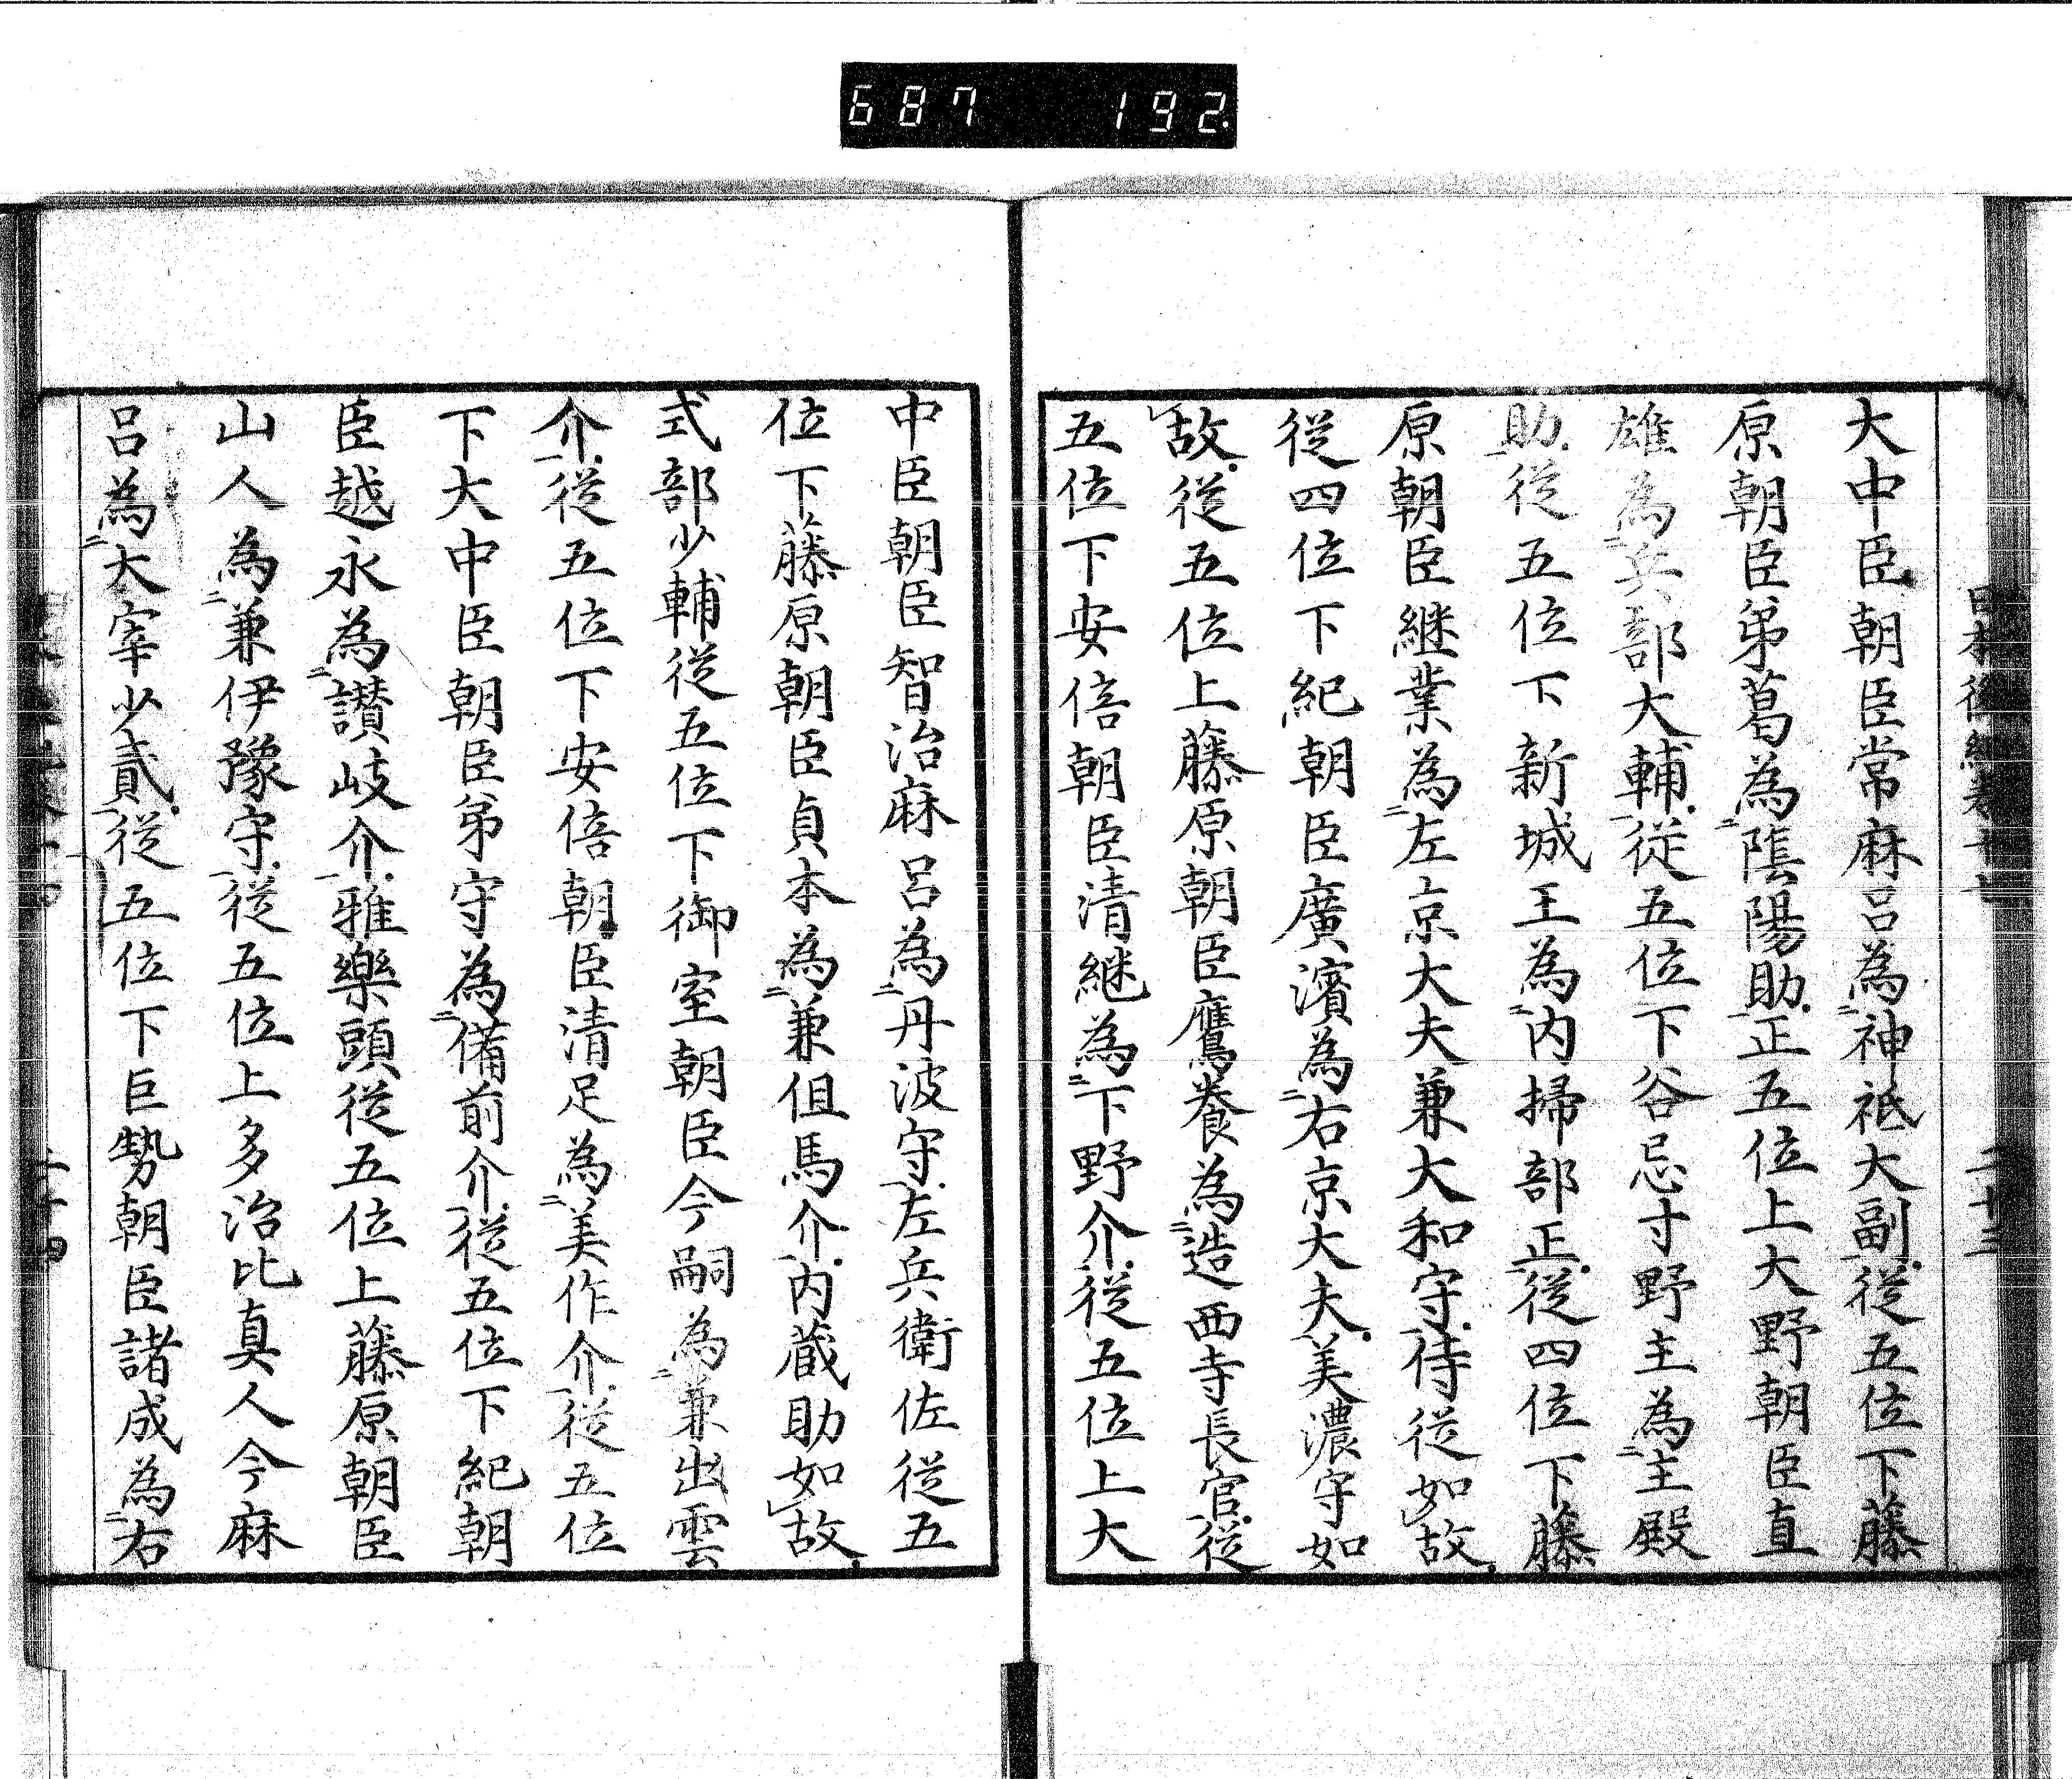 687 192
大中臣朝臣常麻呂為神祇大副従五位下藤
原朝臣弟葛為陰陽助正五位上大野朝臣直
雄為兵部大輔従五位下谷忌寸野主為主殿
助従五位下新城王為内掃部正従四位下藤
原朝臣継業為左京大夫兼大和守侍従如故
従四位下紀朝臣廣濱為右京大夫美濃守如
故従五位上藤原朝臣鷹養為造西寺長官従
五位下安倍朝臣清継為下野介従五位上大
中臣朝臣智治麻呂為丹波守左兵衛佐従五
位下藤原朝臣貞本為兼但馬介内蔵助如故
式部少輔従五位下御室朝臣今嗣為兼出雲
介従五位下安倍朝臣清足為美作介従五位
下大中臣朝臣弟守為備前介従五位下紀朝
臣越永為讃岐介雅樂頭従五位上藤原朝臣
山人為兼伊豫守従五位上多治比真人今麻
呂為大宰少貳従五位下巨勢朝臣諸成為右